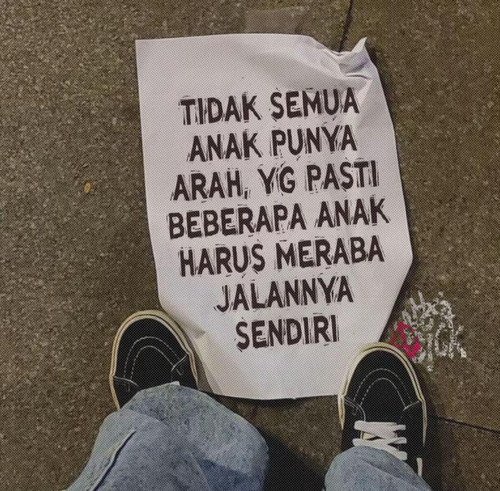 TIDAK SEMUA
ANAK PUNYA
ARAH, YG PASTI
BEBERAPA ANAK
HARUS MERABA
JALANNYA
SENDIRI